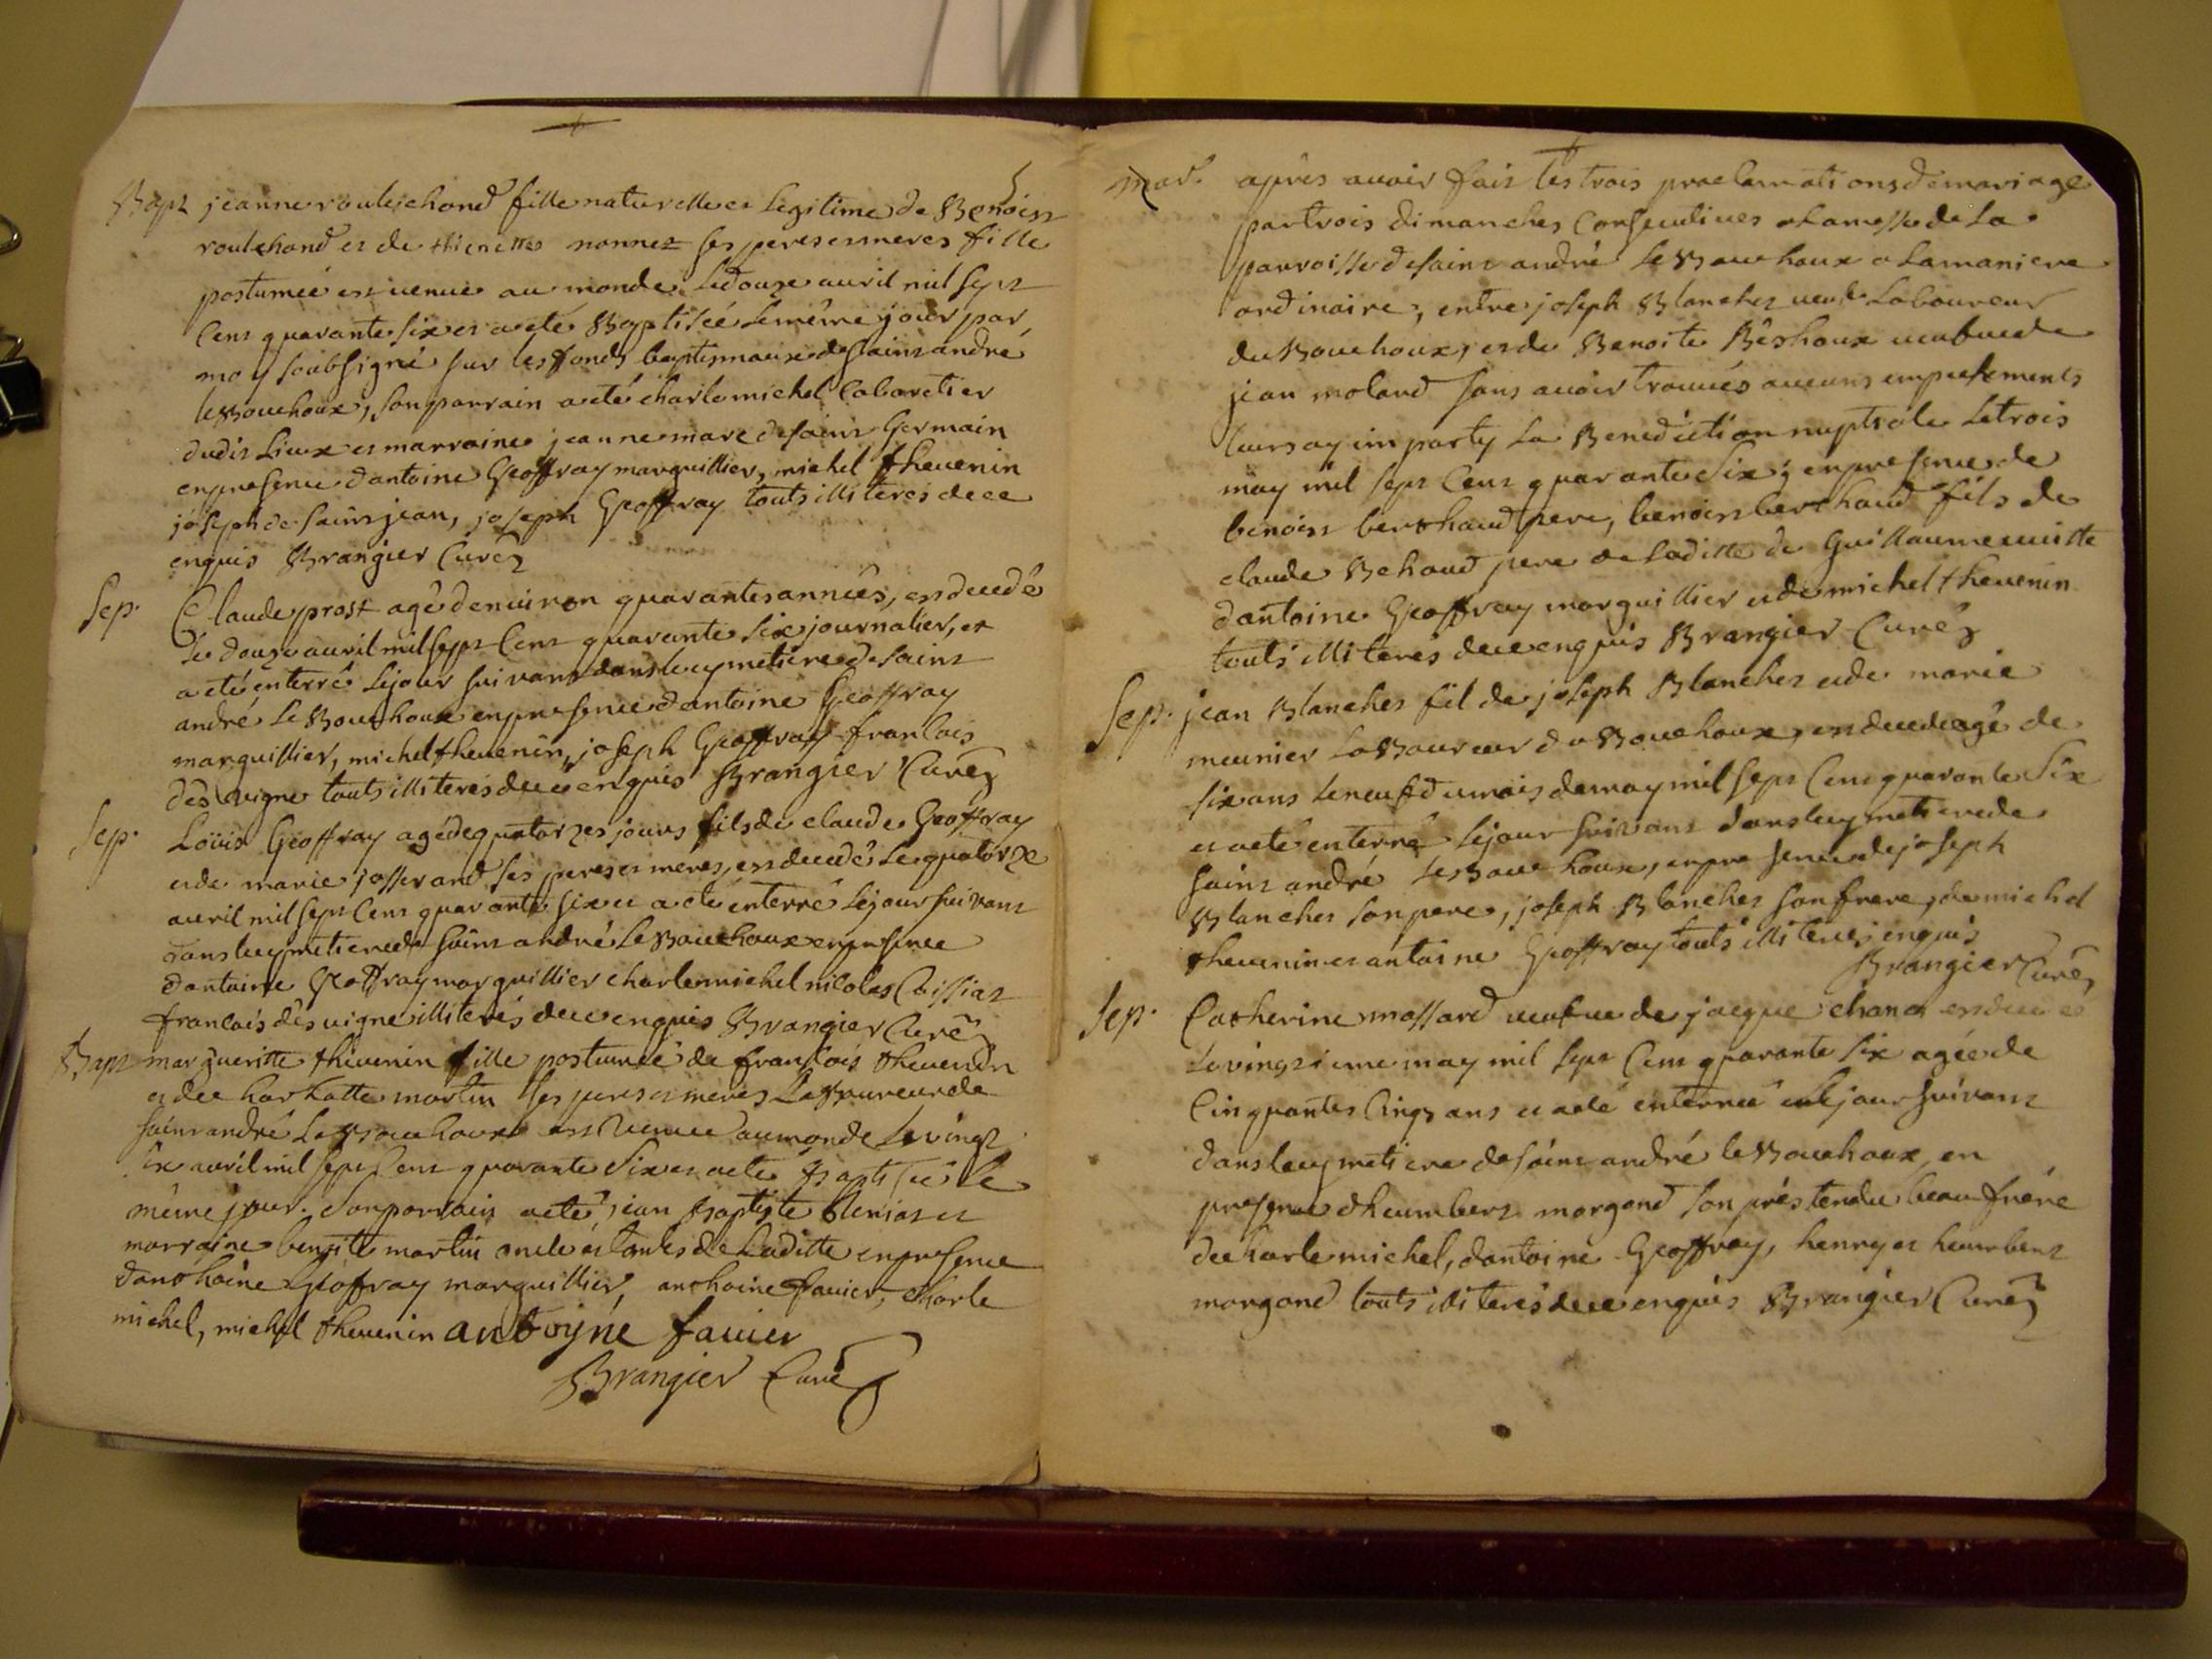 Bapt jeanne roulechond fille naturelle et legitime de Benoist
roulechond et de thienette nonnez ses peres et meres fille
postumeé est venue au monde le douze auril mil sept
Cent quarante six et a eté Baptiseé le même jour par
moy soubsigné sur les fonds baptismaux de saint andré
le Bouchoux, son parrain a eté charle michel Cabaretier
dudit Lieux et marraine jeanne marc de saint Germain
en presence dantoine Geoffray marguillier, michel theuenin
joseph de saint jean, joseph Geoffray touts illiterés de ce
enquis Brangier Curéz
Sep. Claude prost agé denuiron quarantes années, est decedé
le douze auril mil sept Cent quarante six journalier, et
a eté enterré le jour suivant dans le cymetiere de saint
andré le Bouchoux en presence dantoine Geoffray
marguillier, michel theuenin, joseph Geoffray francois
des vigne touts illiterés de ce enquis Brangier Curéz
Sep. Loüis Geoffray agé de quatorzes jours fils de claude Geoffray
et de marie josserand ses peres et meres, est decedé le quatorze
auril mil sept Cent quarante six et a eté enterré le jour suivant
dans le cymetiere de saint andré le Bouchoux en presence
dantoine Geoffray marguillier charle michel nicolas
francois des uigne illiterés de ce enquis Brangier Curéz
Bapt margueritte theuenin fille postumeé de francois theuenin
et de charlotte martin ses peres et meres Laboureur de
saint andré le Bouchoux est venue au monde le vingt
six auril mil sept Cent quarante six et a eté Baptiseé le
même jour. Son parrain a eté jean Baptiste et
marraine benoite martin oncle et tante de Laditte en presence
danthoine Geoffray marguillier, anthoine fauier, charle
michel, michel theuenin antoyne fauier
Brangier Curéz
mar. après auoir fait les trois proclamations de mariage
par trois dimanches Consecutiues a La messe de La
parroisse de saint andré le Bouchoux a La maniere
ordinaire, entre joseph Blanchet ueuf Laboureur
du Bouchoux, et de Benoite ueufue de
jean molard sans auoir trouués aucuns empechements
leurs ay imparty La Benediction nuptiale le trois
may mil sept Cent quarante Six; en presence de
benoist berthaud pere, benoist berthaud fils de
claude pere de Laditte de Guillaume
dantoine Geoffray marguillier et de michel theuenin
touts illiterés de ce enquis Brangier Curéz
Sep. jean Blanchet fil de joseph Blanchet et de marie
meunier Laboureur du Bouchoux, est decedé agé de
six ans le neuf du mois de may mil sept Cent quarante Six
et a eté enterré le jour suivant dans le cymetiere de
saint andré le Bouchoux, en presence de joseph
Blanchet son pere, joseph Blanchet son frere, de michel
theuenin et antoine Geoffray touts illiterés enquis
Brangier Curéz
Sep. Catherine massard ueufue de jacque chanel est decedé
le vingtieme may mil sept Cent quarante six agée de
Cinquantes Cinqs ans et a eté enterreé le jour suivant
dans le cymetiere de saint andré le Bouchoux, en
presence dheumbert morgond son prés tendu beau frére
de charle michel, dantoine Geoffray, henry et heumbert
morgond touts illiterés de ce enquis Brangier Curéz